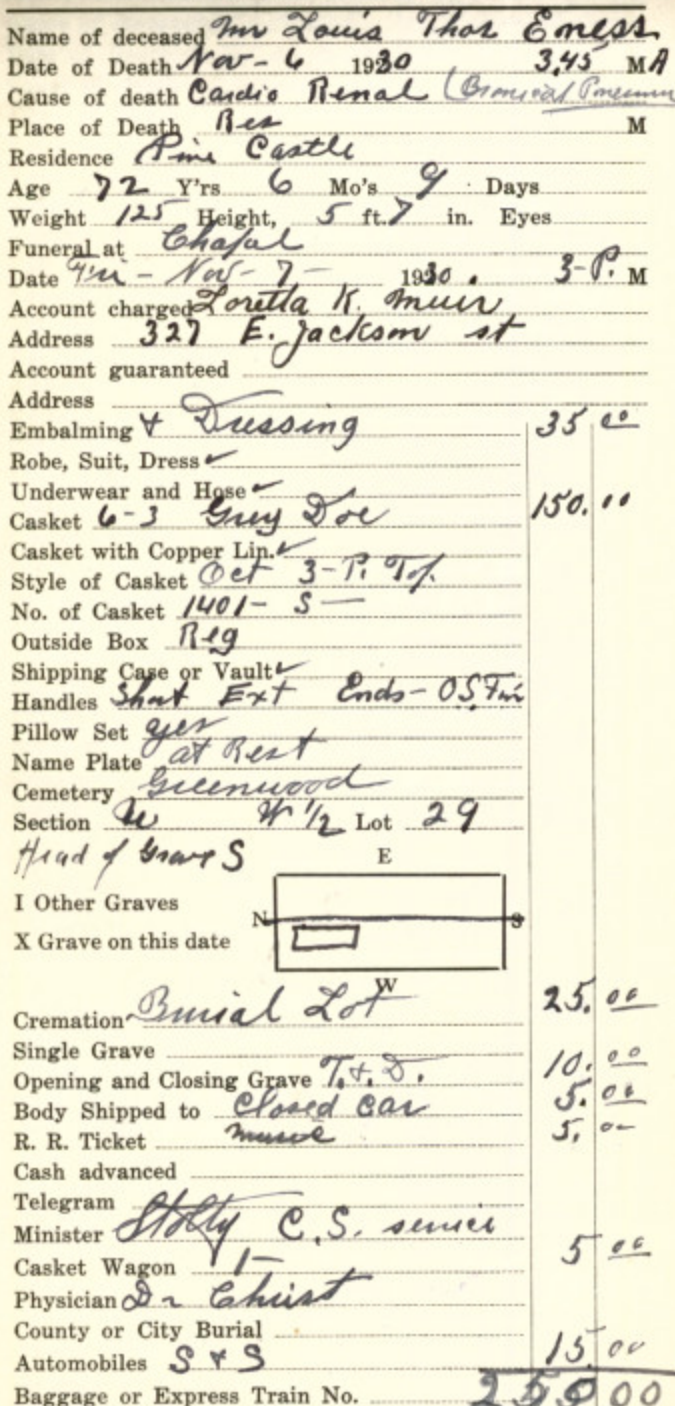 Name of deceased Mr Louis Thos Eness
Date of Death Nov - 6 1930 3,45 M A
Cause of death Cardio Renal (Bronical
Place of Death Res M
Residence Pine Castle
Age 72 Y'rs 6 Mo's 9 Days
Weight 125 Height, 5 ft. 7 in. Eyes
Funeral at Chapal
Date Fri - Nov - 7 - 1930. 3-P. M
Account charged Loretta K. Muir
Address 327 E. Jackson st
Account guaranteed
Address
Embalming & Dressing 35 00
Robe, Suit, Dress ✓
Underwear and Hose ✓
Casket 6-3 Grey Doe 150. 00
Casket with Copper Lin. ✓
Style of Casket Oct 3-P. Top.
No. of Casket 1401- S —
Outside Box Reg
Shipping Case or Vault ✓
Handles Short Ext Ends - O.S.
Pillow Set yes
Name Plate at Rest
Cemetery Greenwood
Section W 1/2 Lot 29
Head of Grave S
E
I Other Graves
N S
X Grave on this date
W
Cremation Burial Lot 25. 00
Single Grave
Opening and Closing Grave T. & D. 10. 00
Body Shipped to Closed Car 5. 00
R. R. Ticket music 5. 00
Cash advanced
Telegram
Minister C.S. service
Casket Wagon 1 — 5 00
Physician Dr Christ
County or City Burial
Automobiles S & S 15 00
Baggage or Express Train No. 250 00